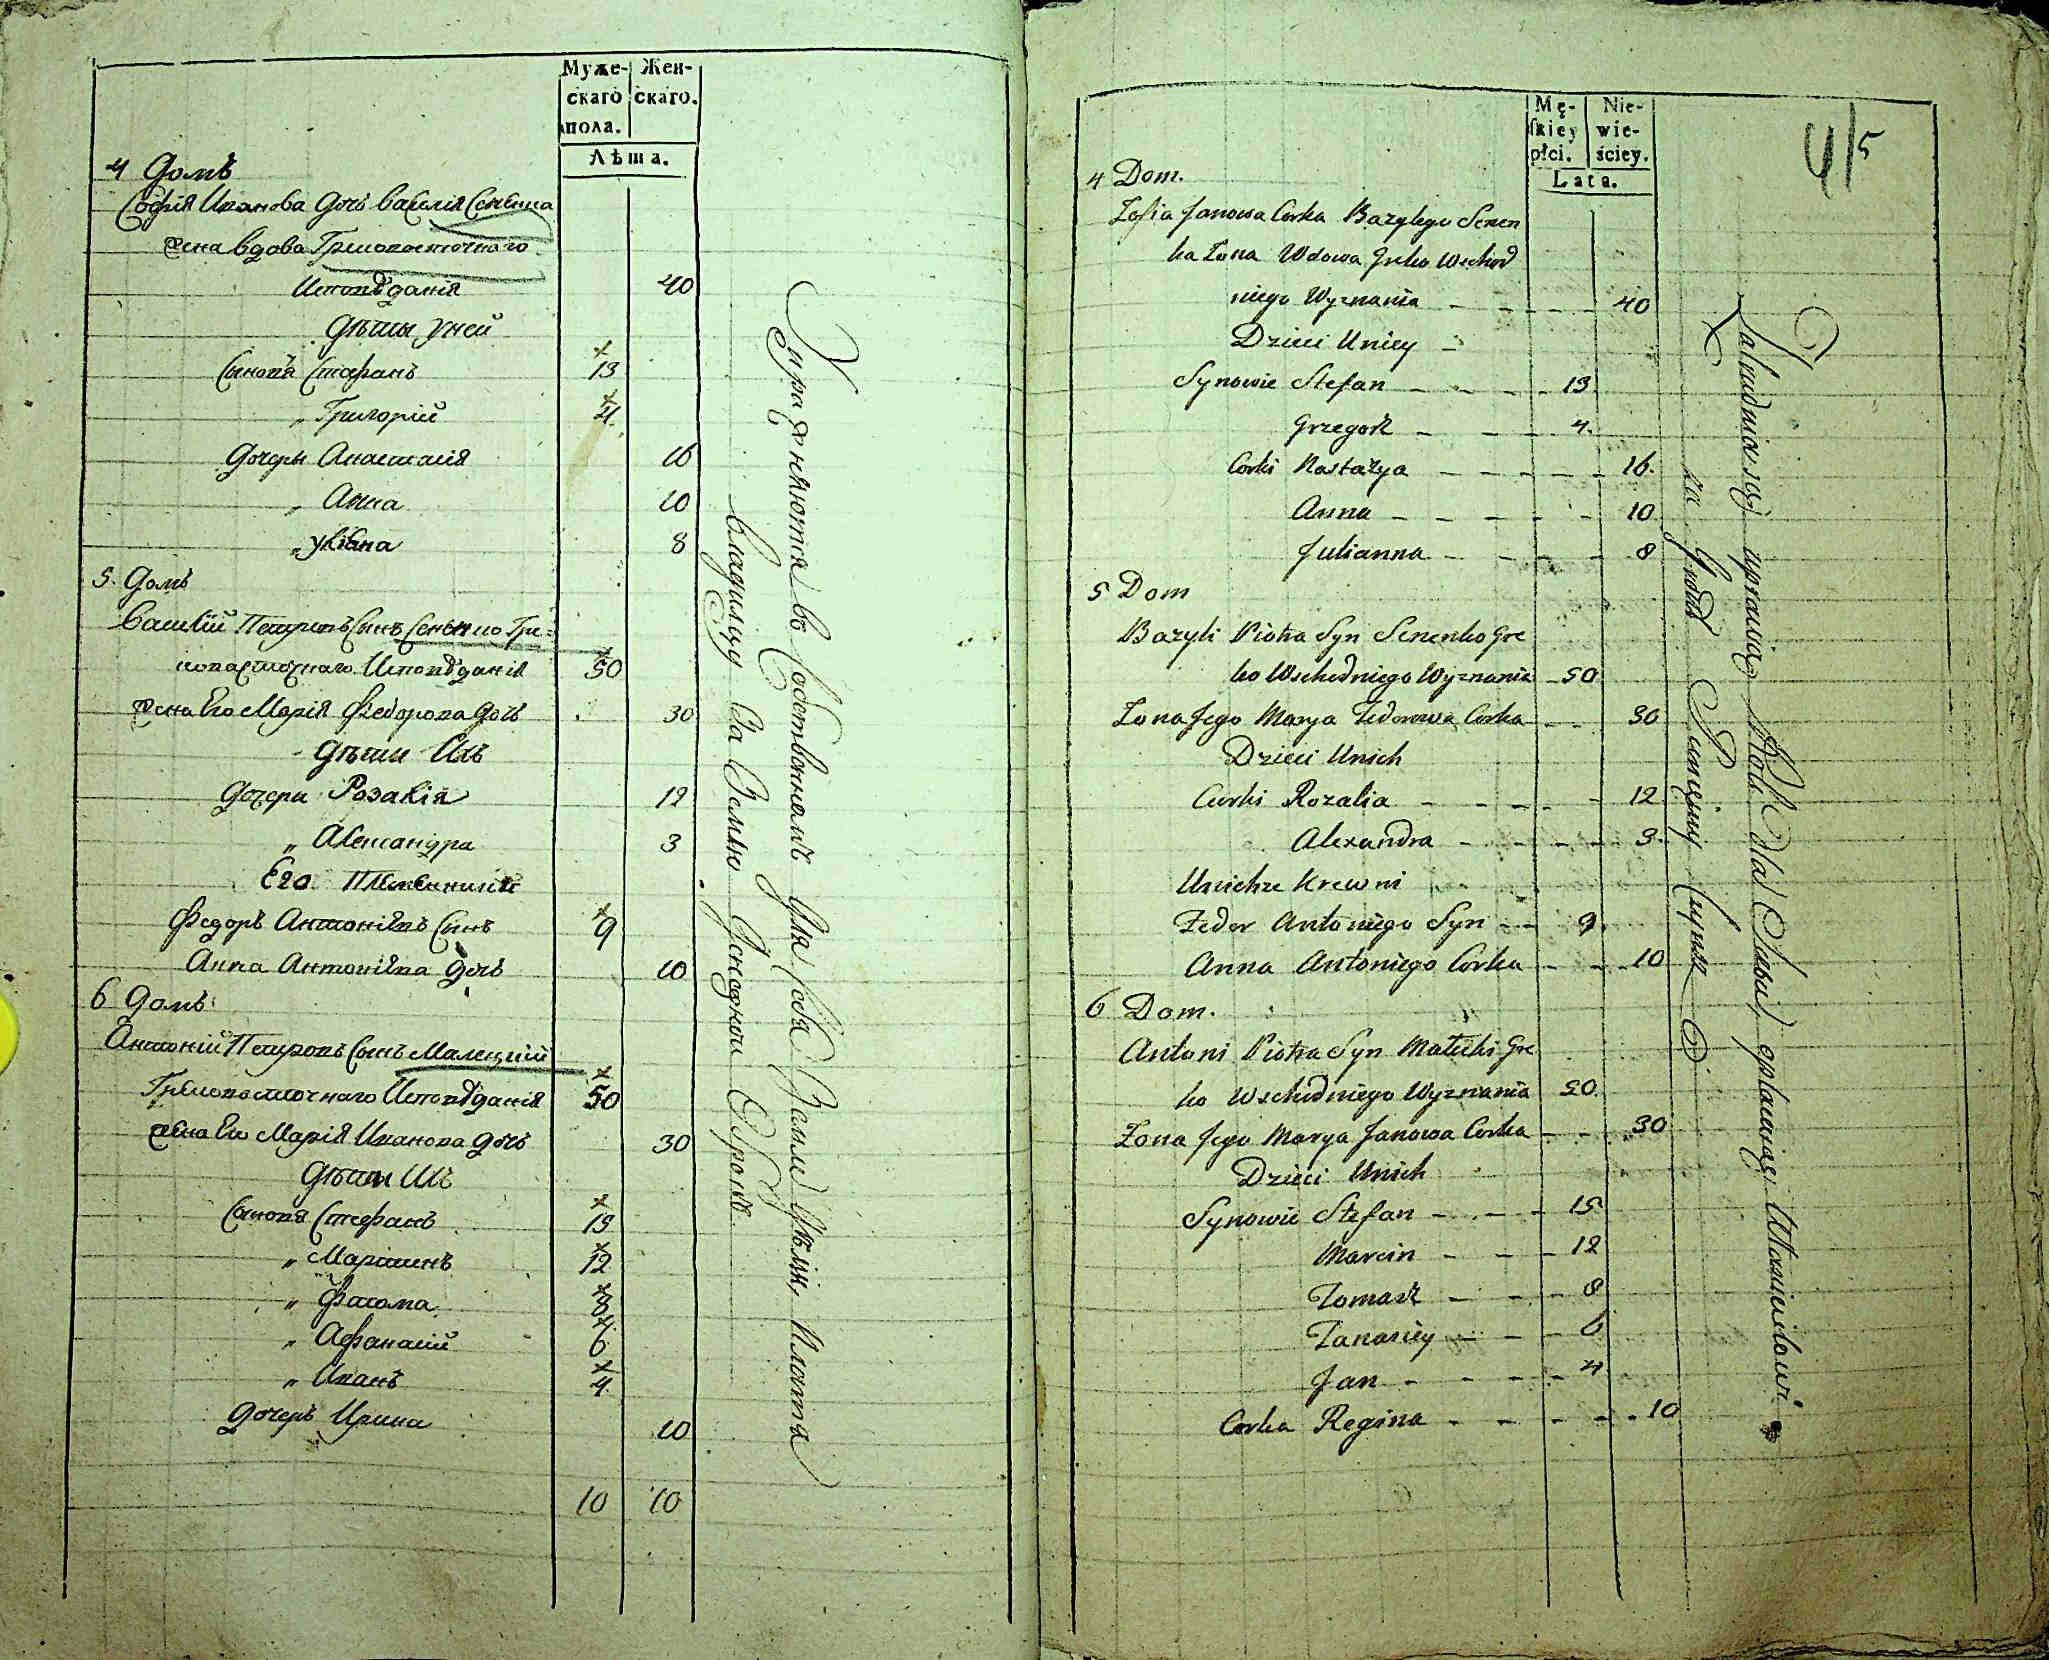 Муже-
скаго
пола.
Жен-
скаго.
Лѣта.
4 Домъ
Софія Иванова дочь Василія Сененка
жена вдова Грековосточнаго
Исповѣданія 40
Дѣти у ней
Сыновя Стефанъ 13
„ Григорій 4.
Дочери Анастасія 16
„ Анна 10
„ Уліяна 8
5. Домъ
Василій Петровъ Сынъ Сененко Гре-
ковосточнаго Исповѣданія 50
жена Его Марія Федорова дочь 30
Дѣти Ихъ
Дочери Розалія 12
„ Александра 3
Его Племенники
Федоръ Антоніевъ Сынъ 9
Анна Антоніева дочь 10
6 Домъ
Антоній Петровъ Сынъ Малецкій
Грековосточнаго Исповѣданія 50
жена Его Марія Иванова дочь 30
Дѣти Ихъ
Сыновя Стефанъ 15
„ Мартинъ 12
„ Фатома 8
„ Афанасій 6
„ Иванъ 4
Дочерь Ирина 10
10 10
Упражняются въ Собственномъ для себя Земледѣліи, платя
владѣльцу за Землю Денежной Оброкъ
4/5
Mę-
skiey
płci.
Nie-
wie-
ściey.
Lata.
4 Dom.
Zofia Janowa Corka Bazylego Senen
ka Zona Wdowa Greko Wschod
niego Wyznania 40
Dzieci Uniey
Synowie Stefan 13
Grzegorz 4.
Corki Nastazya 16.
Anna 10
Julianna 8
5 Dom
Bazyli Piotra Syn Senenko Gre
ko Wschodniego Wyznania 50
Zona Jego Marya Fedorowa Corka 30
Dzieci Unich
Corki Rozalia 12
Alexandra 3.
Unichze Krewni
Fedor Antoniego Syn 9.
Anna Antoniego Corka 10
6 Dom.
Antoni Piotra Syn Malecki Gre
ko Wschodniego Wyznania 50.
Zona Jego Marya Janowa Corka 30
Dzieci Unich
Synowie Stefan 15
Marcin 12
Tomasz 8
Tanasiey 6
Jan 4
Corka Regina 10
Zatrudniaią się uprawią Roli dla Siebie, opłacaiąc Właścicielowi
za Grunt Pieniężny Czynsz